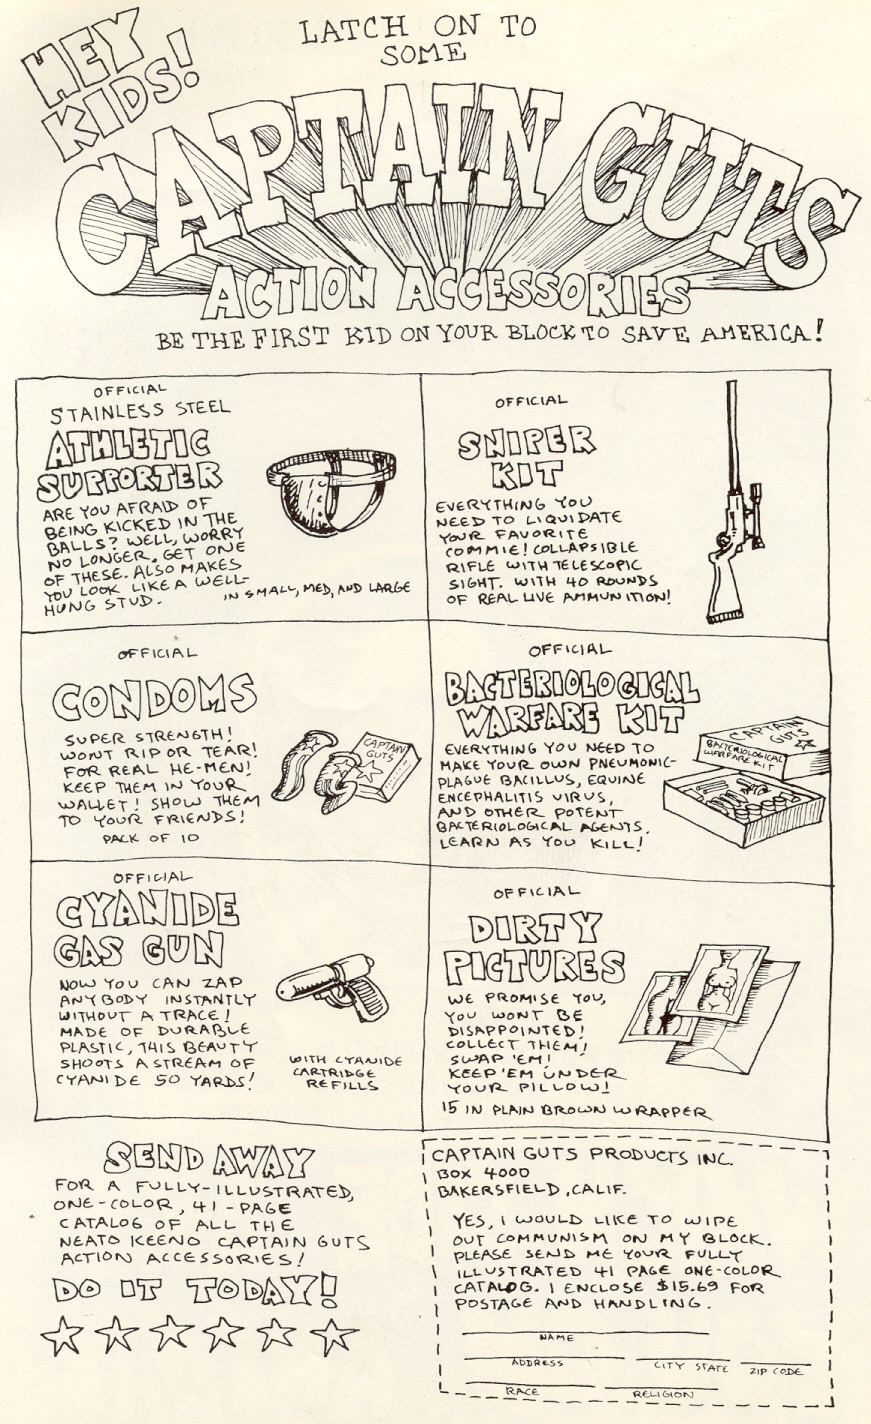 HEY
KIDS!
LATCH ON TO
SOME
CAPTAIN GUTS
ACTION ACCESSORIES
BE THE FIRST KID ON YOUR BLOCK TO SAVE AMERICA!
OFFICIAL
STAINLESS STEEL
ATHLETIC
SUPPORTER
ARE YOU AFRAID OF
BEING KICKED IN THE
BALLS? WELL, WORRY
NO LONGER. GET ONE
OF THESE. ALSO MAKES
YOU LOOK LIKE A WELL-
HUNG STUD.
IN SMALL, MED, AND LARGE
OFFICIAL
SNIPER
KIT
EVERYTHING YOU
NEED TO LIQUIDATE
YOUR FAVORITE
COMMIE! COLLAPSIBLE
RIFLE WITH TELESCOPIC
SIGHT. WITH 40 ROUNDS
OF REAL LIVE AMMUNITION!
OFFICIAL
CONDOMS
SUPER STRENGTH!
WONT RIP OR TEAR!
FOR REAL HE-MEN!
KEEP THEM IN YOUR
WALLET! SHOW THEM
TO YOUR FRIENDS!
PACK OF 10
CAPTAIN
GUTS
OFFICIAL
BACTERIOLOGICAL
WARFARE KIT
EVERYTHING YOU NEED TO
MAKE YOUR OWN PNEUMONIC-
PLAGUE BACILLUS, EQUINE
ENCEPHALITIS VIRUS,
AND OTHER POTENT
BACTERIOLOGICAL AGENTS.
LEARN AS YOU KILL!
CAPTAIN
GUTS
BACTERIOLOGICAL
WARFARE KIT
OFFICIAL
CYANIDE
GAS GUN
NOW YOU CAN ZAP
ANYBODY INSTANTLY
WITHOUT A TRACE!
MADE OF DURABLE
PLASTIC, THIS BEAUTY
SHOOTS A STREAM OF
CYANIDE 50 YARDS!
WITH CYANIDE
CARTRIDGE
REFILLS
OFFICIAL
DIRTY
PICTURES
WE PROMISE YOU,
YOU WONT BE
DISAPPOINTED!
COLLECT THEM!
SWAP 'EM!
KEEP 'EM UNDER
YOUR PILLOW!
15 IN PLAIN BROWN WRAPPER
SEND AWAY
FOR A FULLY-ILLUSTRATED,
ONE-COLOR, 41-PAGE
CATALOG OF ALL THE
NEATO KEENO CAPTAIN GUTS
ACTION ACCESSORIES!
DO IT TODAY!
CAPTAIN GUTS PRODUCTS INC.
BOX 4000
BAKERSFIELD, CALIF.
YES, I WOULD LIKE TO WIPE
OUT COMMUNISM ON MY BLOCK.
PLEASE SEND ME YOUR FULLY
ILLUSTRATED 41 PAGE ONE-COLOR
CATALOG. I ENCLOSE $15.69 FOR
POSTAGE AND HANDLING.
NAME
ADDRESS CITY STATE ZIP CODE
RACE RELIGION